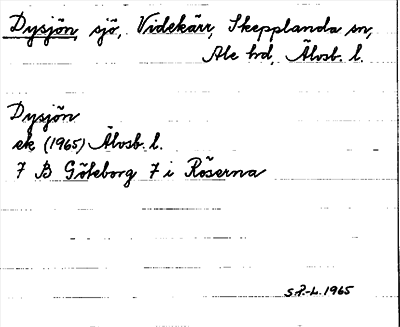 Dysjön, sjö, Videkärr, Skepplanda sn,
Ale hd, Älvsb. l.
Dysjön
ek (1965) Älvsb. l.
7 B Göteborg 7 i Röserna
S.P.-L. 1965